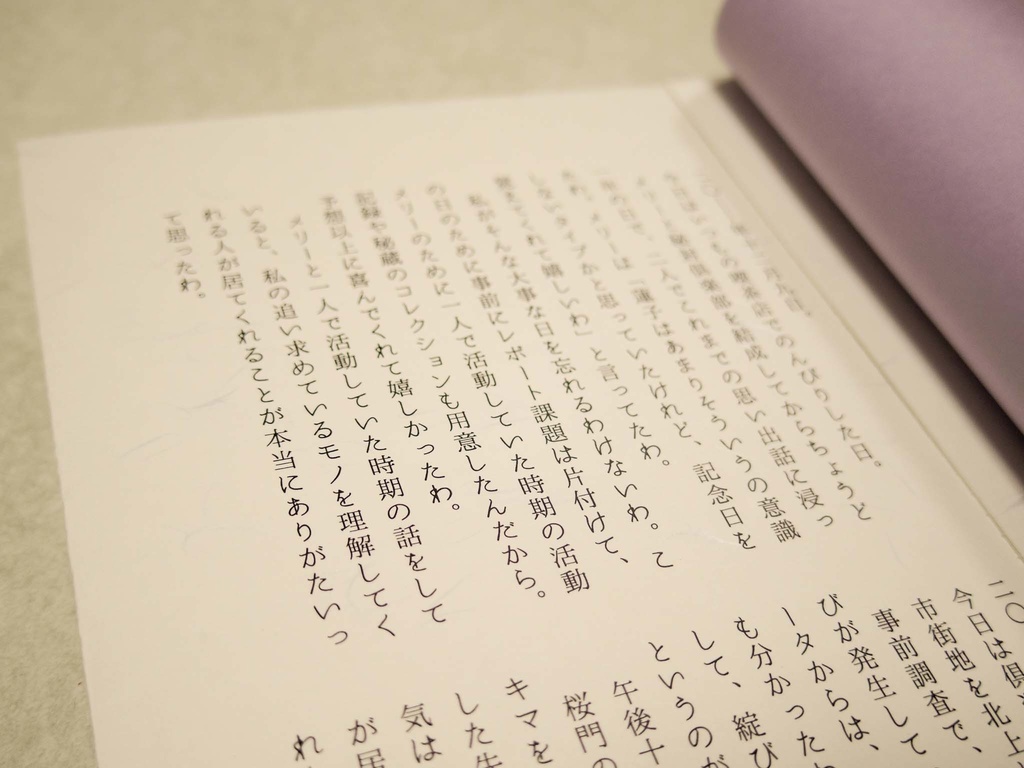 月九日。
今日はいつもの喫茶店でのんびりした日。
メリーと秘封倶楽部を結成してからちょうど
の日で、二人でこれまでの思い出話に浸っ
たわ。メリーは「蓮子はあまりそういうの意識
しないタイプかと思っていたけれど、記念日を
覚えてくれて嬉しいわ」と言ってたわ。
私がそんな大事な日を忘れるわけないわ。こ
の日のために事前にレポート課題は片付けて、
メリーのために一人で活動していた時期の活動
記録や秘蔵のコレクションも用意したんだから。
予想以上に喜んでくれて嬉しかったわ。
メリーと一人で活動していた時期の話をして
いると、私の追い求めているモノを理解してく
れる人が居てくれることが本当にありがたいっ
て思ったわ。
二〇
今日は倶
市街地を北上
事前調査で、
びが発生して
ータからは、
も分かったわ
して、綻び
というのが
午後十
桜門の
キマを
した先
気は
が居
れ